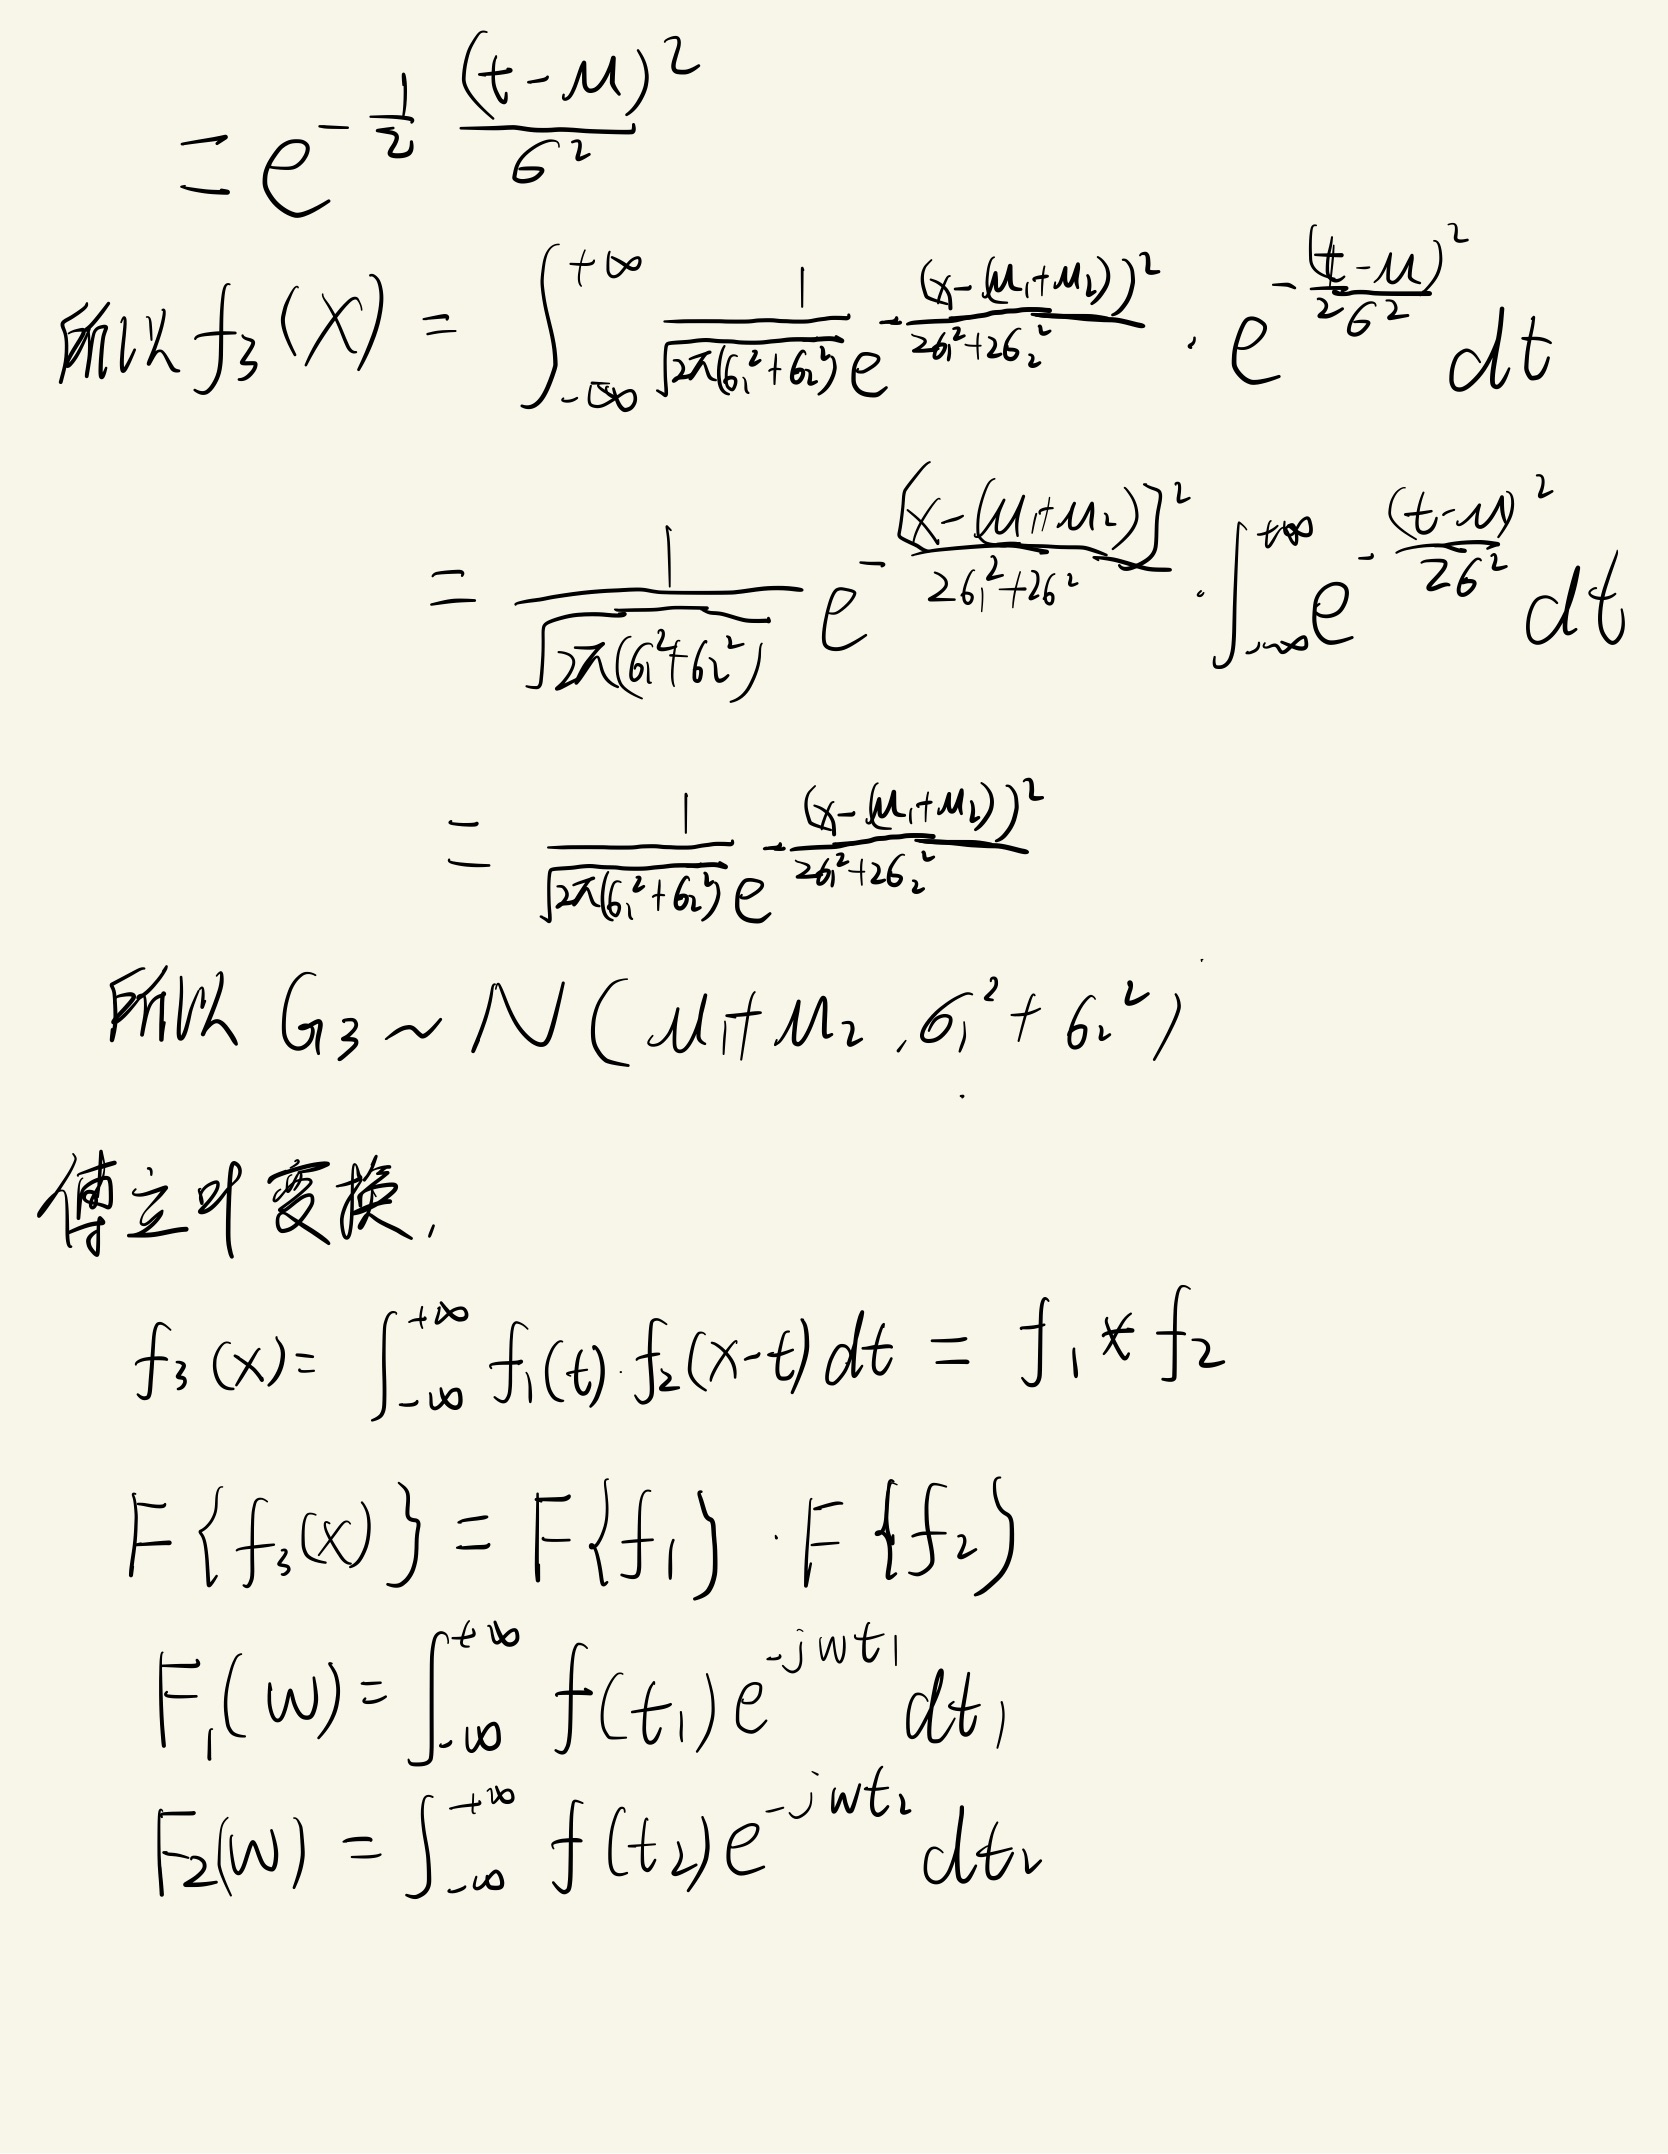 = e^{-\frac{1}{2} \frac{(t-μ)^2}{σ^2}}
所以 f_3(x) = \int_{-∞}^{+∞} \frac{1}{\sqrt{2π(σ_1^2+σ_2^2)}} e^{-\frac{(x-(μ_1+μ_2))^2}{2σ_1^2+2σ_2^2}} · e^{-\frac{(t-μ)^2}{2σ^2}} dt
= \frac{1}{\sqrt{2π(σ_1^2+σ_2^2)}} e^{-\frac{[x-(μ_1+μ_2)]^2}{2σ_1^2+2σ^2}} · \int_{-∞}^{+∞} e^{-\frac{(t-μ)^2}{2σ^2}} dt
= \frac{1}{\sqrt{2π(σ_1^2+σ_2^2)}} e^{-\frac{(x-(μ_1+μ_2))^2}{2σ_1^2+2σ_2^2}}
所以 G_3 ~ N(μ_1+μ_2, σ_1^2+σ_2^2)
傅立叶变换,
f_3(x) = \int_{-∞}^{+∞} f_1(t)·f_2(x-t) dt = f_1 * f_2
F{f_3(x)} = F{f_1} · F{f_2}
F_1(w) = \int_{-∞}^{+∞} f(t_1) e^{-jwt_1} dt_1
F_2(w) = \int_{-∞}^{+∞} f(t_2) e^{-jwt_2} dt_2